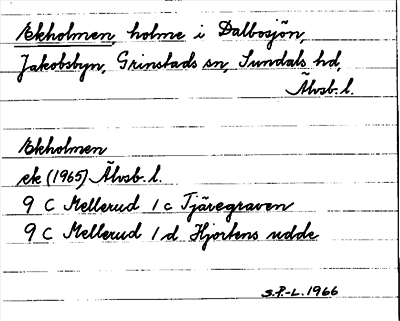 Ekholmen, holme i Dalbosjön,
Jakobsbyn, Grinstads sn, Sundals hd,
Älvsb. l.
Ekholmen
ek (1965) Älvsb. l.
9 C Mellerud 1 c Tjäregraven
9 C Mellerud 1 d Hjortens udde
S.P.-L. 1966